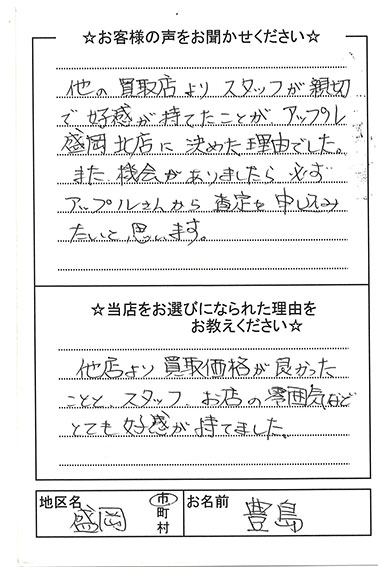 ☆お客様の声をお聞かせください☆
他の買取店よりスタッフが親切
で好感が持てたことがアップル
盛岡北店に決めた理由でした。
また機会がありましたら必ず
アップルさんから査定を申し込み
たいと思います。
☆当店をお選びになられた理由を
お教えください☆
他店より買取価格が良かった
ことと、スタッフ、お店の雰囲気など
とても好感が持てました。
地区名 盛岡 市町村 お名前 豊島